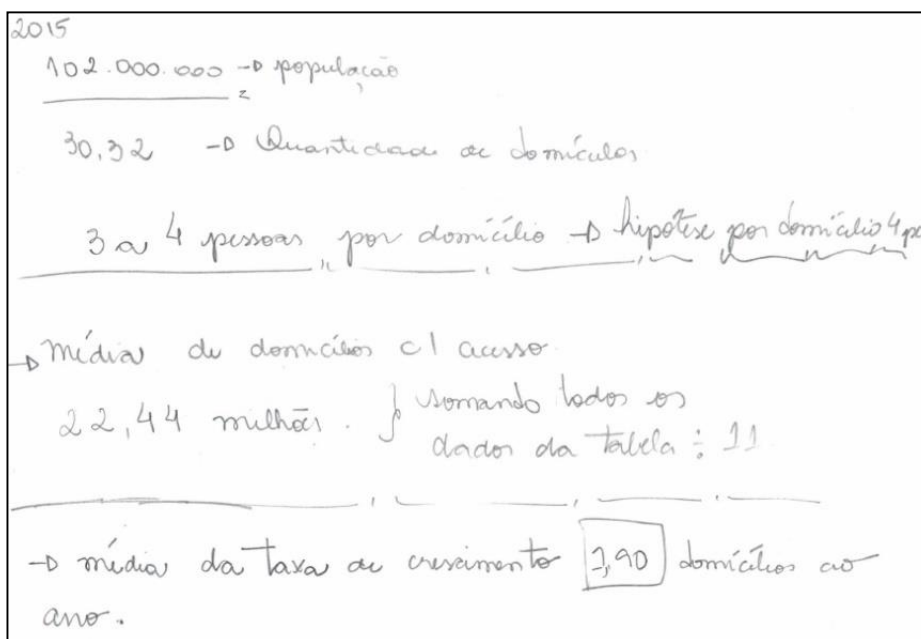 2015
102.000.000 → população
30,32 → Quantidade de domículos
3 a 4 pessoas por domicílio → hipótese por domicílio 4 pe
→ média de domicílios c/ acesso
22,44 milhões. } somando todos os
dados da tabela ÷ 11
→ média da taxa de crescimento domicílios ao
ano.